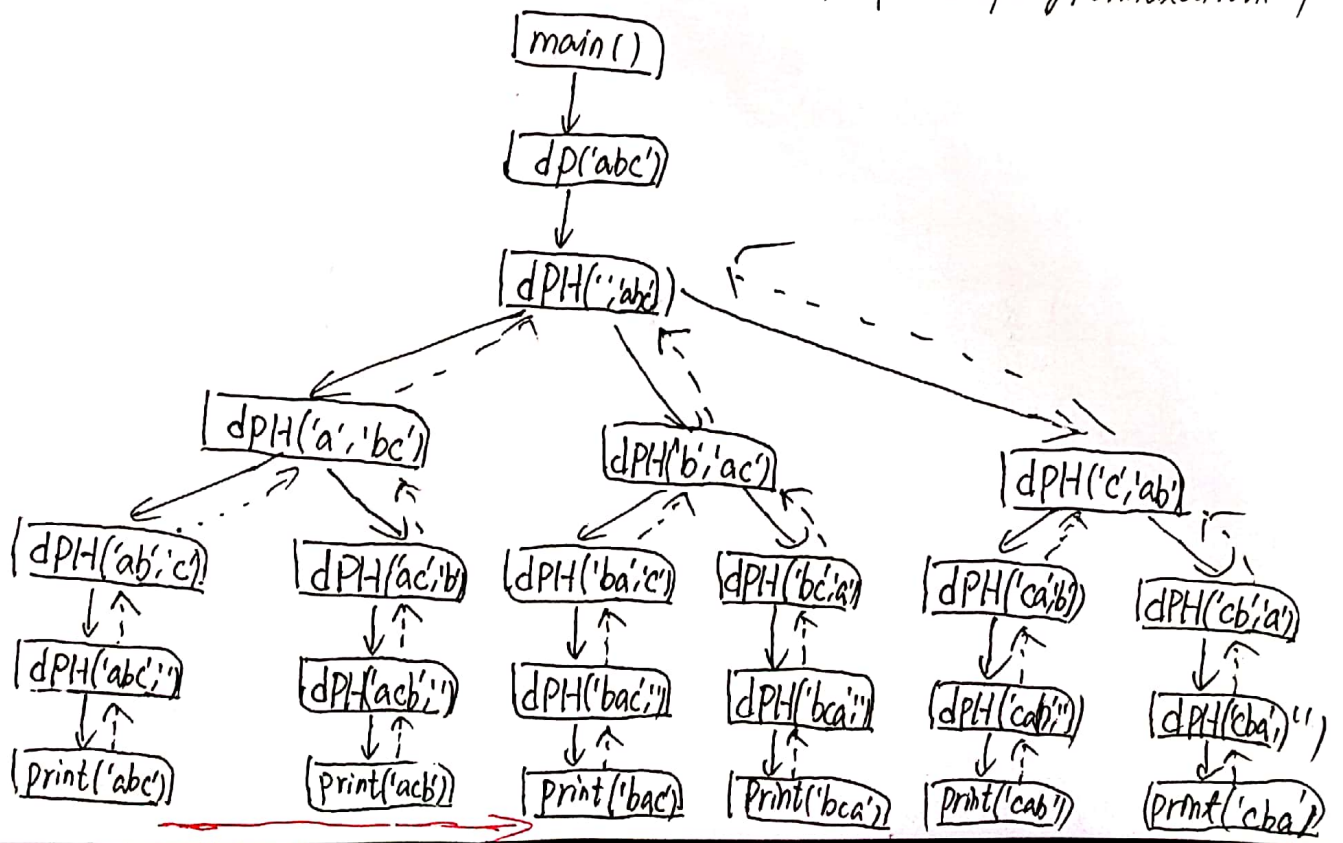 main()
dp('abc')
dPH('','abc')
dPH('a','bc')
dPH('b','ac')
dPH('c','ab')
dPH('ab','c')
dPH('ac','b')
dPH('ba','c')
dPH('bc','a')
dPH('ca','b')
dPH('cb','a')
dPH('abc','')
dPH('acb','')
dPH('bac','')
dPH('bca','')
dPH('cab','')
dPH('cba','')
print('abc')
print('acb')
print('bac')
print('bca')
print('cab')
print('cba')